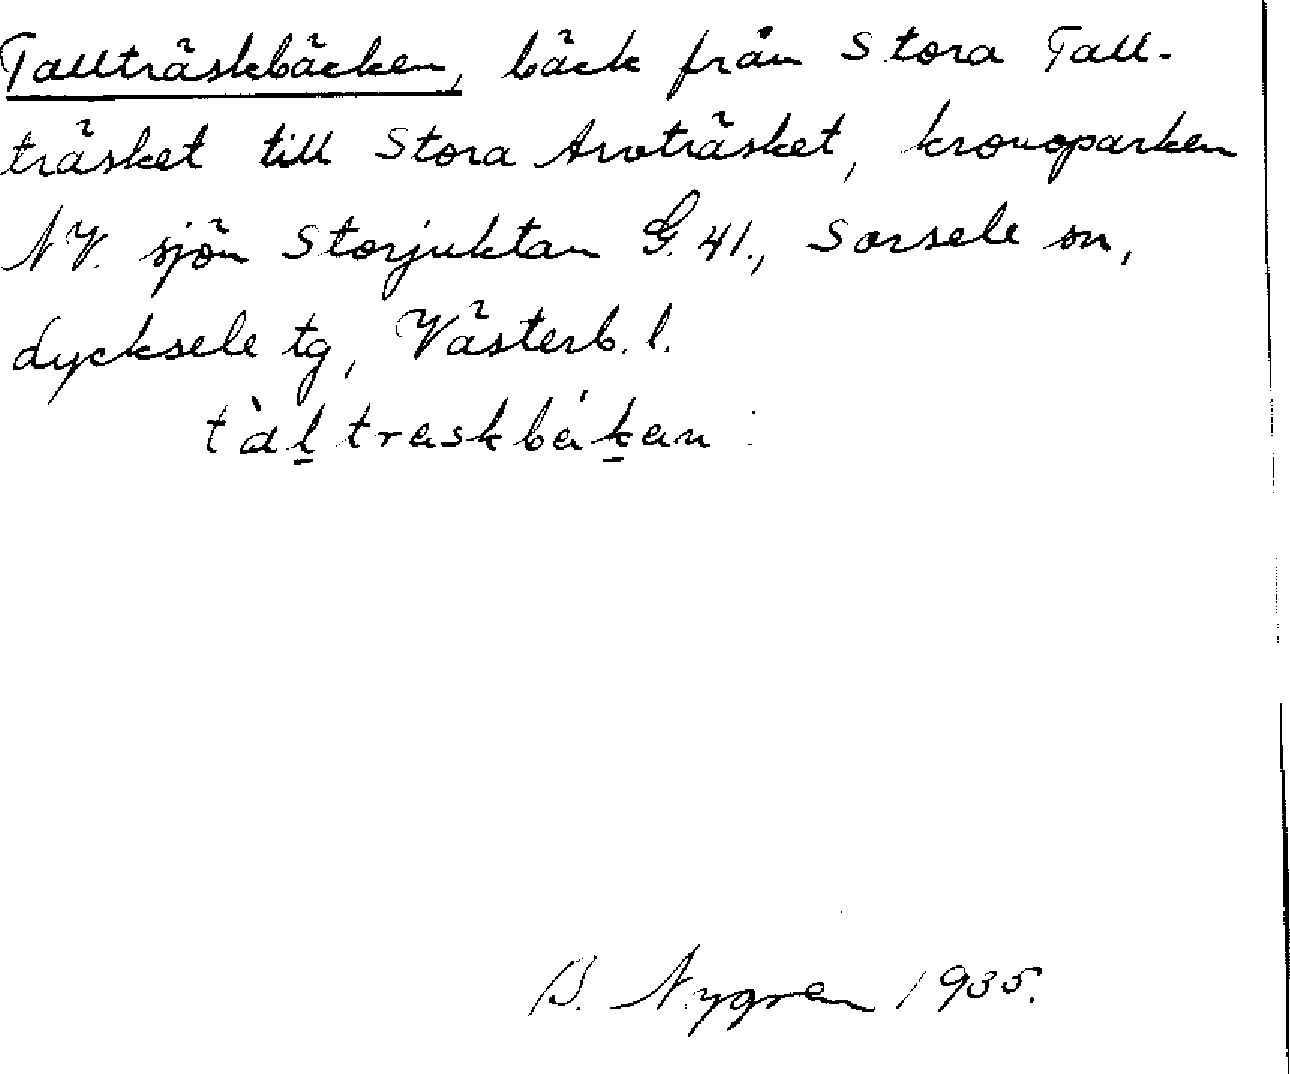 Tallträskbäcken, bäck från Stora Tall-
träsket till Stora Arvträsket, kronoparken
NV. sjön Storjuktan G. 41., Sorsele sn,
Lycksele tg, Västerb. l.
tàl̠traskbák̠an
B. Nygren 1935.